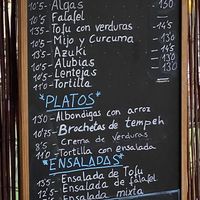 10'5- Algas - 130
10'5- Falafel
13'5- Tofu con verduras - 14'5
10'5- Mijo y Curcuma - 130
13'5- Azuki
10'5- Alubias
10'5- Lentejas
11'0- Tortilla
*PLATOS*
13'0- Albondigas con arroz
10'75- Brochetas de tempeh
8'5- Crema de verduras
11'0- Tortilla con ensalada
*ENSALADAS*
13'5- Ensalada de Tofu
12'5- Ensalada de falafel
Ensalada mixta